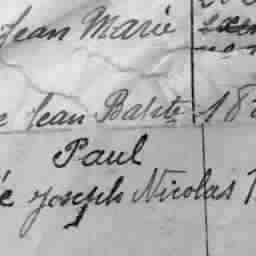 Jean Marie
Jean Bapte 18
Paul
Joseph Nicolas